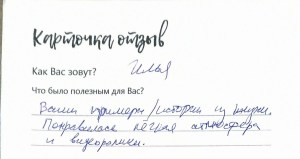 Карточка отзыв
Как Вас зовут? Илья
Что было полезным для Вас?
Ваши примеры/истории из жизни.
Понравилась лёгкая атмосфера
и видеоролики.